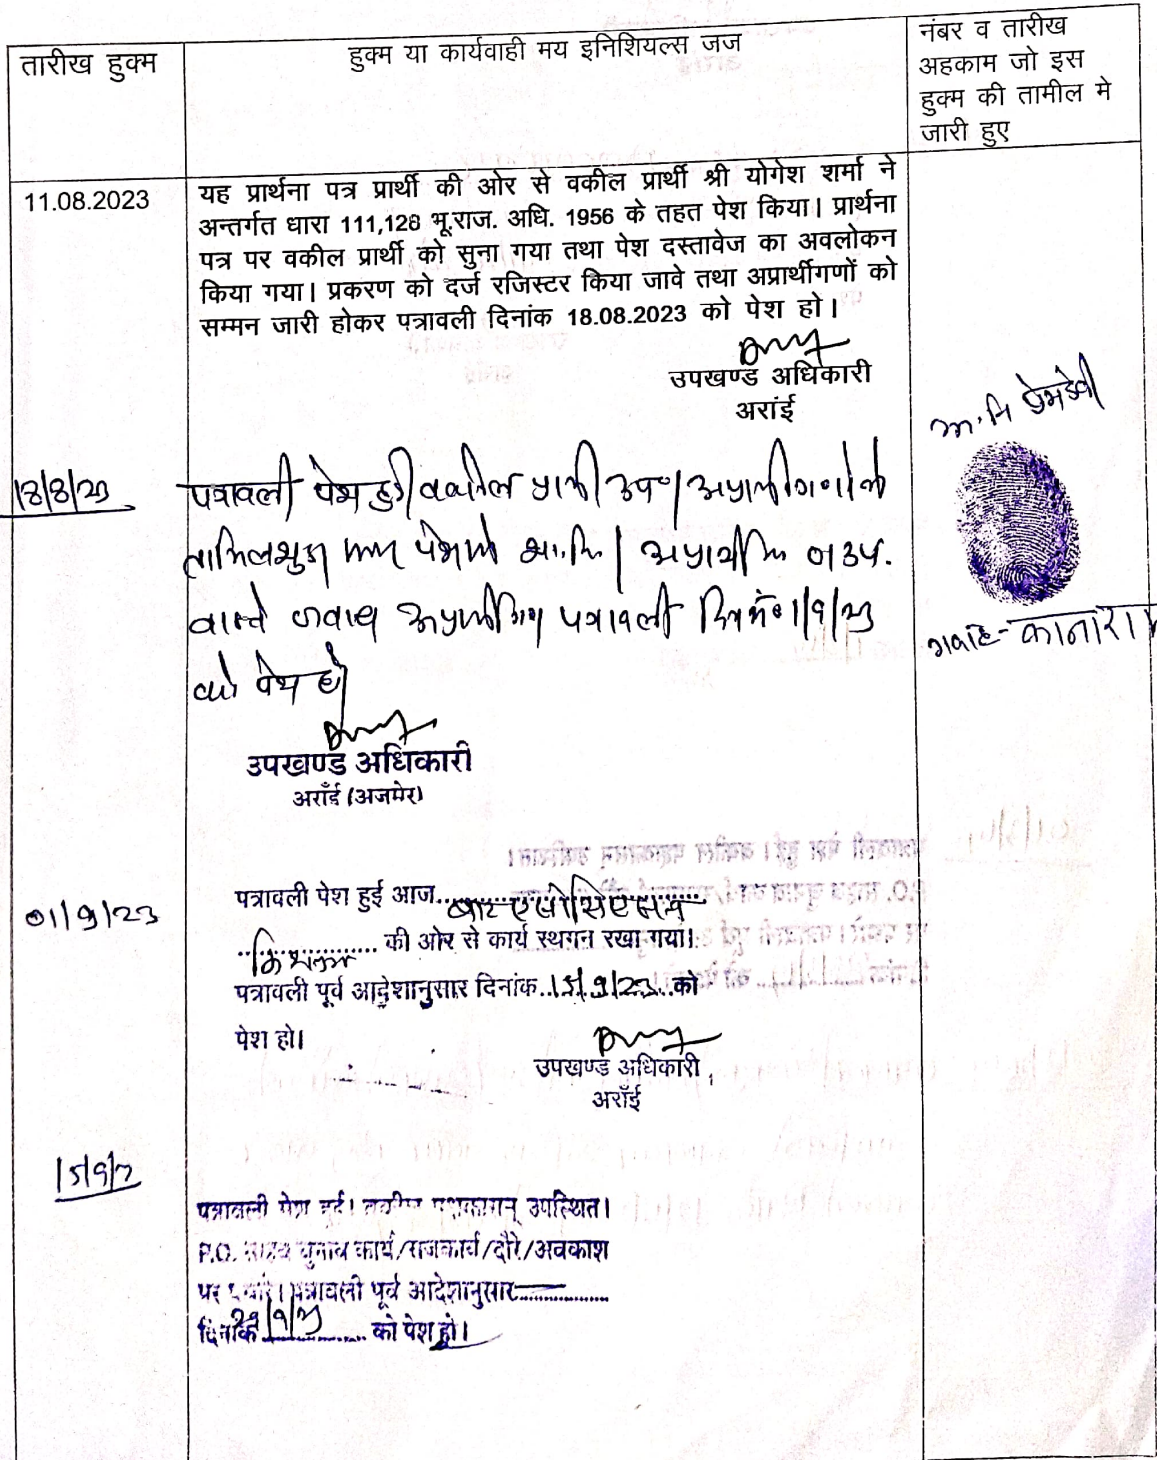 तारीख हुक्म
हुक्म या कार्यवाही मय इनिशियल्स जज
नंबर व तारीख
अहकाम जो इस
हुक्म की तामील मे
जारी हुए
11.08.2023
यह प्रार्थना पत्र प्रार्थी की ओर से वकील प्रार्थी श्री योगेश शर्मा ने
अन्तर्गत धारा 111,128 भू.राज. अधि. 1956 के तहत पेश किया। प्रार्थना
पत्र पर वकील प्रार्थी को सुना गया तथा पेश दस्तावेज का अवलोकन
किया गया। प्रकरण को दर्ज रजिस्टर किया जावे तथा अप्रार्थीगणों को
सम्मन जारी होकर पत्रावली दिनांक 18.08.2023 को पेश हो।
उपखण्ड अधिकारी
अरांई
18/8/23
पत्रावली पेश हुई वकील प्रार्थी उप०
पत्रावली
1/9/23
को पेश हो
उपखण्ड अधिकारी
अराँई (अजमेर)
गवाह- कानाराम
01/9/23
पत्रावली पेश हुई आज बार एसोसिएसन
की ओर से कार्य स्थगन रखा गया।
पत्रावली पूर्व आदेशानुसार दिनांक 15/9/23 को
पेश हो।
उपखण्ड अधिकारी
अराँई
15/9/2
पत्रावली पेश हुई। उपस्थित।
P.O. चुनाव कार्य/राजकार्य/दौरे/अवकाश
पर पत्रावली पूर्व आदेशानुसार
दिनांक को पेश हो।